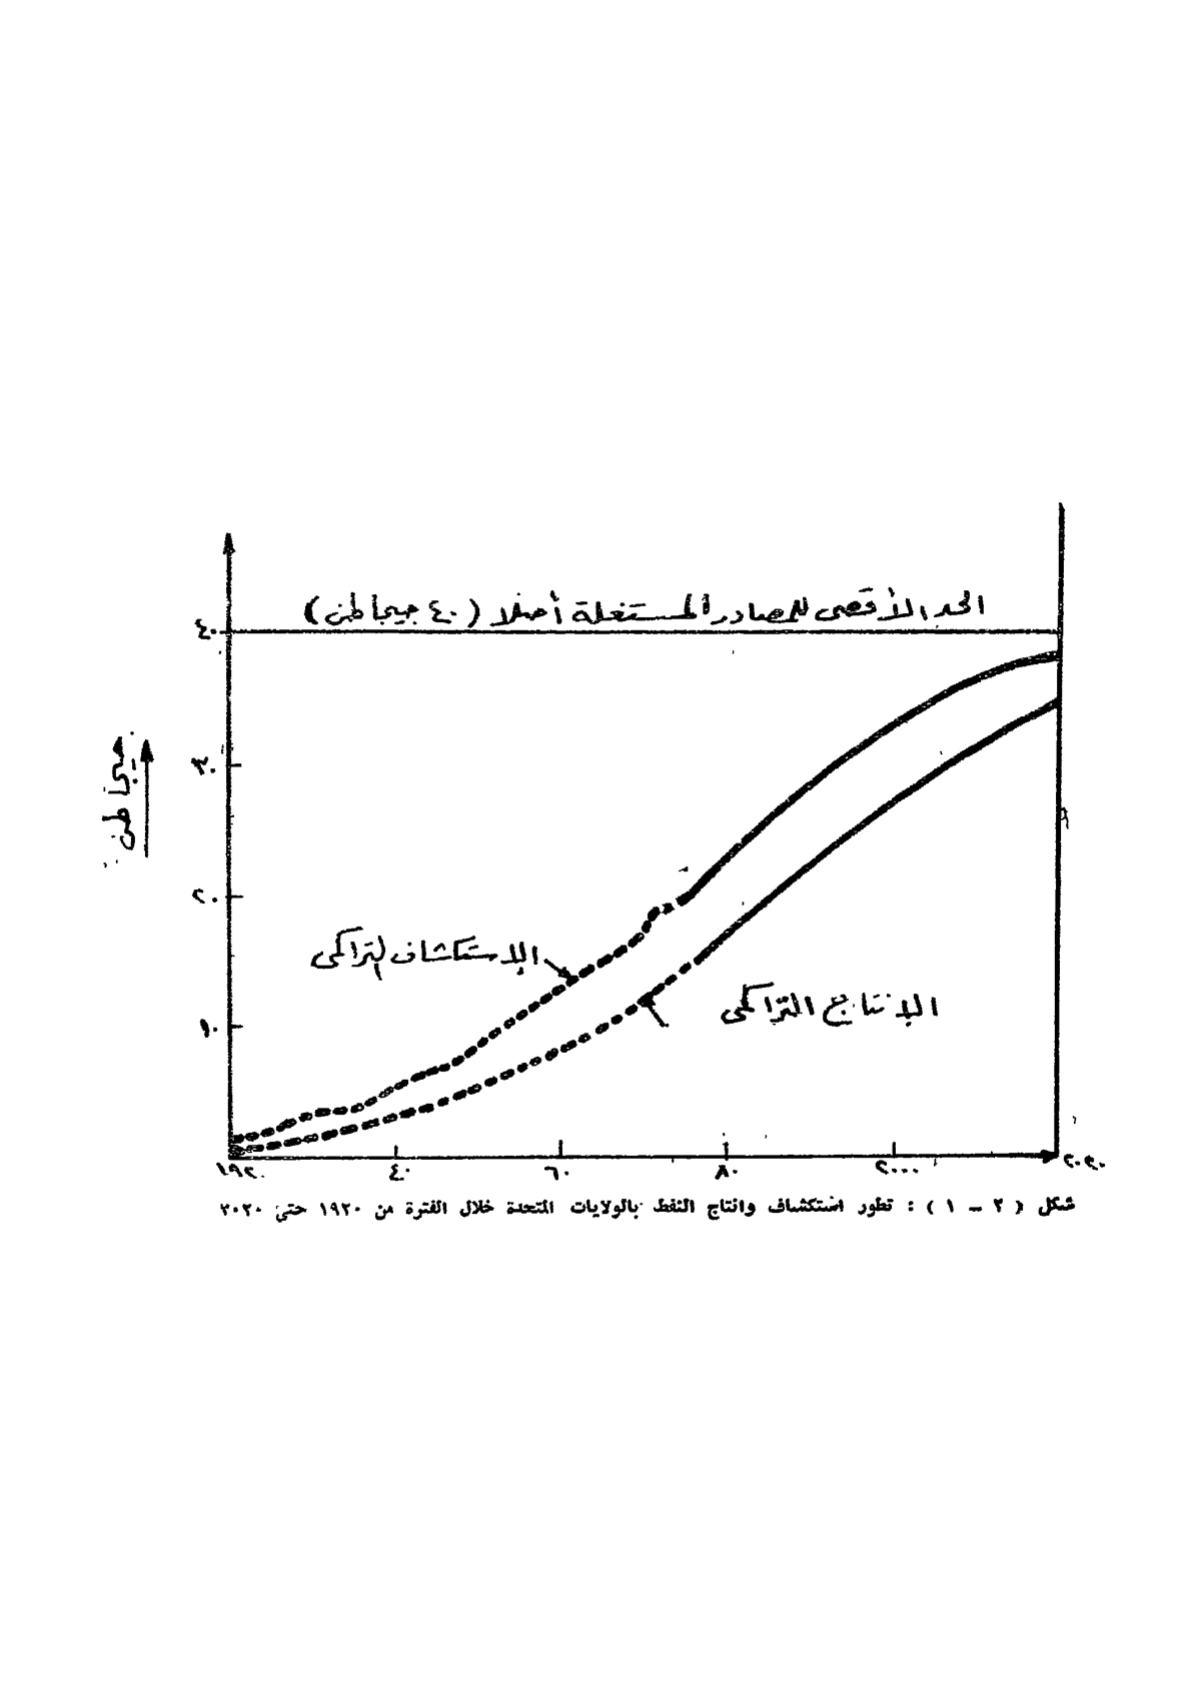 الحد الأقصى للمصادر المستغلة أصلا (٤٠ جيجا طن)
٤٠
جيجا طن
٣٠
٢٠
الإستكشاف التراكمى
الإنتاج التراكمى
١٠
١٩٢٠ ٤٠ ٦٠ ٨٠ ٢٠٠٠ ٢٠٢٠
شكل ( ٢ – ١ ) : تطور استكشاف وانتاج النفط بالولايات المتحدة خلال الفترة من ١٩٢٠ حتى ٢٠٢٠